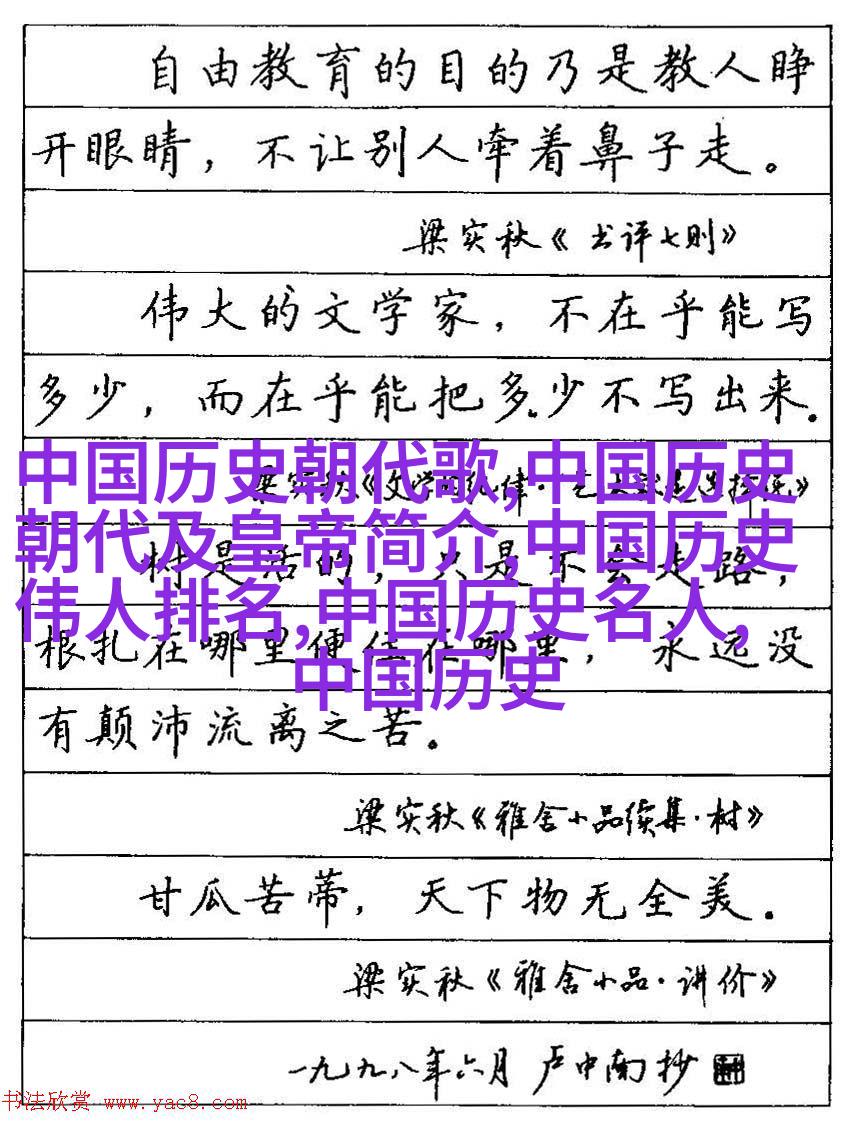 自由教育的目的乃是教人睁
开眼睛，不让别人牵着鼻子走。
梁实秋《书评七则》
伟大的文学家，不在乎能写
多少，而在乎能把多少不写出来.
梁实秋《文学的纪律·
中国历史朝代歌,中国历史
朝代及皇帝简介,中国历史
伟人排名,中国历史名人,
中国历史
树是活的，只是不会走路，
根扎在哪里便住在哪里，永远没
有颠沛流离之苦。
梁实秋《雅舍小品续集·树》
甘瓜苦蒂，天下物无全美.
梁实秋《雅舍小品·讲价》
一九九八年六月 卢中南抄
书法欣赏 www.yac8.com